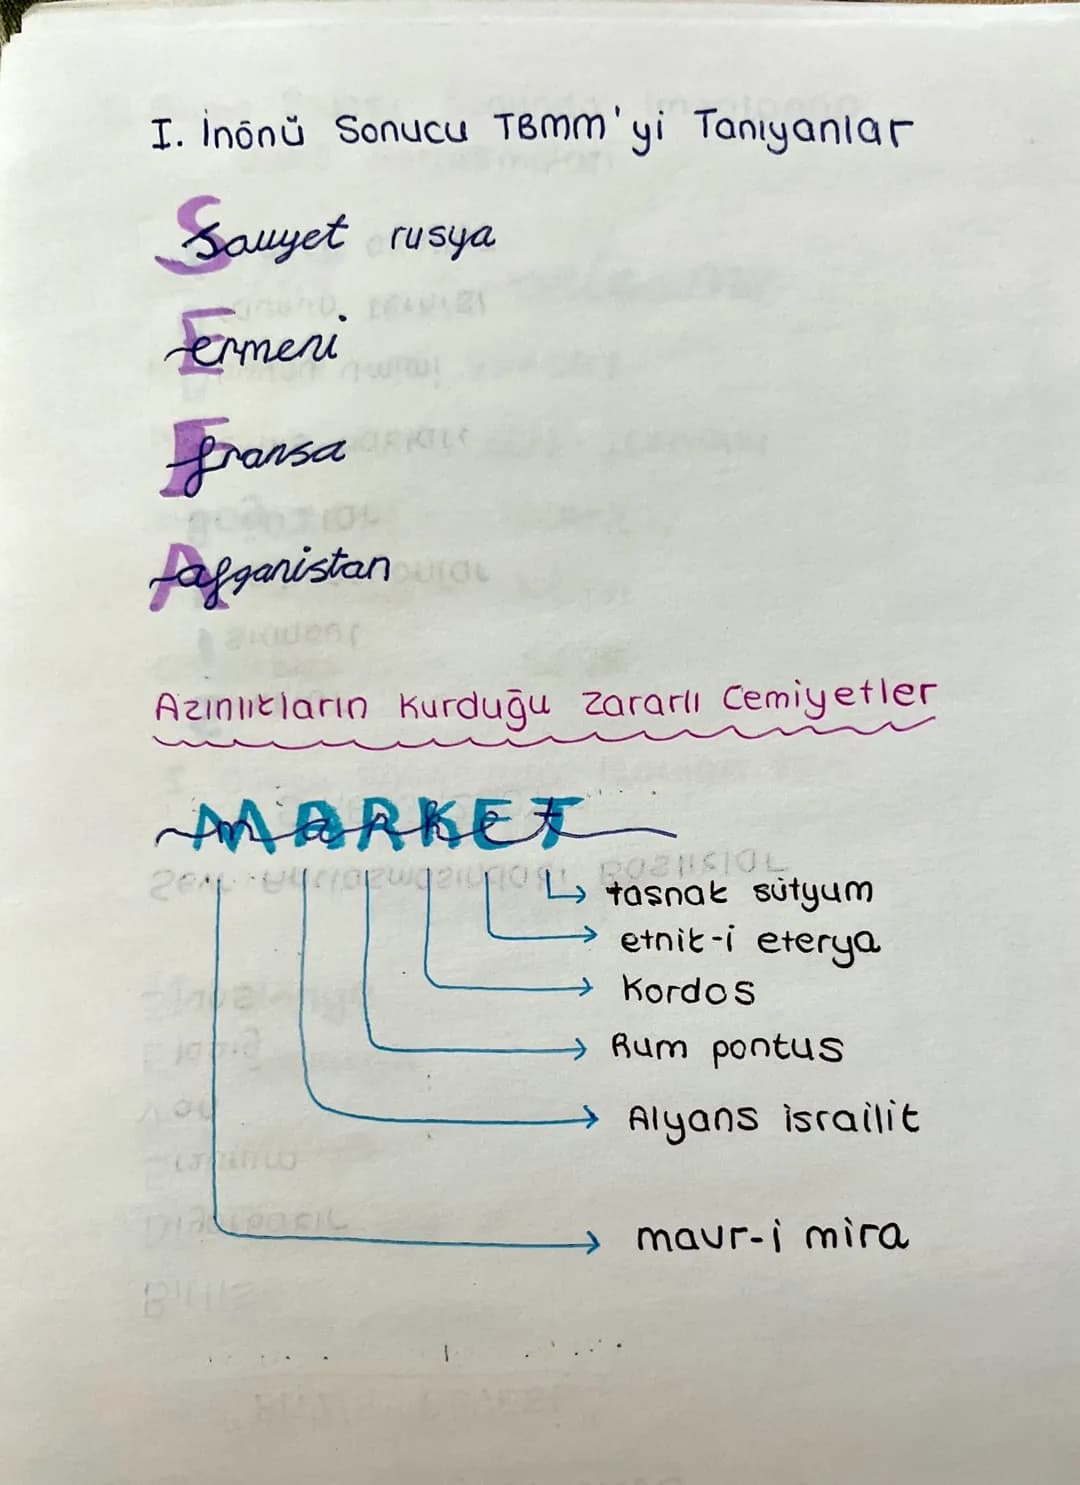 I. İnönü Sonucu TBMM'yi Tanıyanlar
Sovyet rusya
Ermeni
Fransa
Afganistan
Azınlıkların Kurduğu Zararlı Cemiyetler
MARKET
tasnak sütyum
etnik-i eterya
Kordos
Rum pontus
Alyans israilit
mavr-i mira